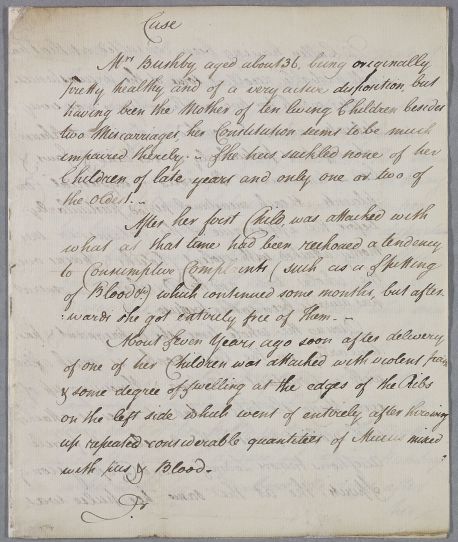 Case
Mrs Bushby aged about 36, being originally
pretty healthy and of a very active disposition, but
having been the Mother of ten living Children besides
two Miscarriages, her Constitution seems to be much
impaired thereby. She has suckled none of her
Children of late years and only one or two of
the oldest.
After her first Child, was attacked with
what at that time had been reckoned a tendency
to Consumptive Complaints (such as a Spitting
of Blood &c) which continued some months, but after-
-wards she got entirely free of them.
About seven Years ago soon after delivery
of one of her Children was attacked with violent pain
& some degree of swelling at the edges of the Ribs
on the left side which went of entirely after throwing
up repeated considerable quantities of Mucus mixed
with pus & Blood.